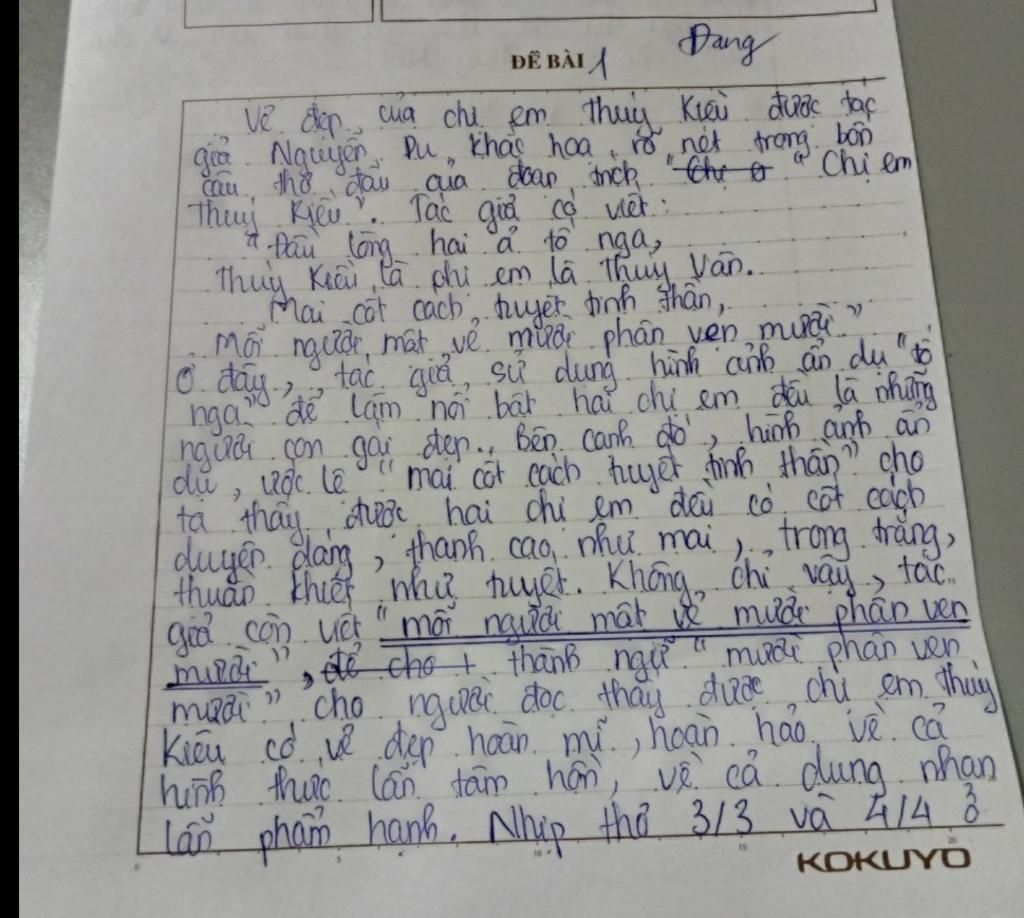 ĐỀ BÀI 1 Đang
Vẻ đẹp của chị em Thúy Kiều được tác
giả Nguyễn Du khắc họa rõ nét trong bốn
câu thơ đầu của đoạn trích "Chị e " Chị em
Thuý Kiều". Tác giả có viết:
"Đầu lòng hai ả tố nga,
Thuý Kiều là chị em là Thúy Vân.
Mai cốt cách tuyết tinh thần,
Mỗi người một vẻ mười phân vẹn mười"
Ở đây, tác giả sử dụng hình ảnh ẩn dụ "tố
nga" để làm nổi bật hai chị em đều là những
người con gái đẹp. Bên cạnh đó, hình ảnh ẩn
dụ, ước lệ "mai cốt cách tuyết tinh thần" cho
ta thấy được hai chị em đều có cốt cách
duyên dáng, thanh cao như mai, trong trắng,
thuần khiết như tuyết. Không chỉ vậy, tác
giả còn viết "mỗi người một vẻ mười phân vẹn
mười", để cho + thành ngữ "mười phân vẹn
mười" cho người đọc thấy được chị em Thúy
Kiều có vẻ đẹp hoàn mĩ, hoàn hảo về cả
hình thức lẫn tâm hồn, về cả dung nhan
lẫn phẩm hạnh. Nhịp thơ 3/3 và 4/4 ở
0 5 10 15 20
KOKUYO